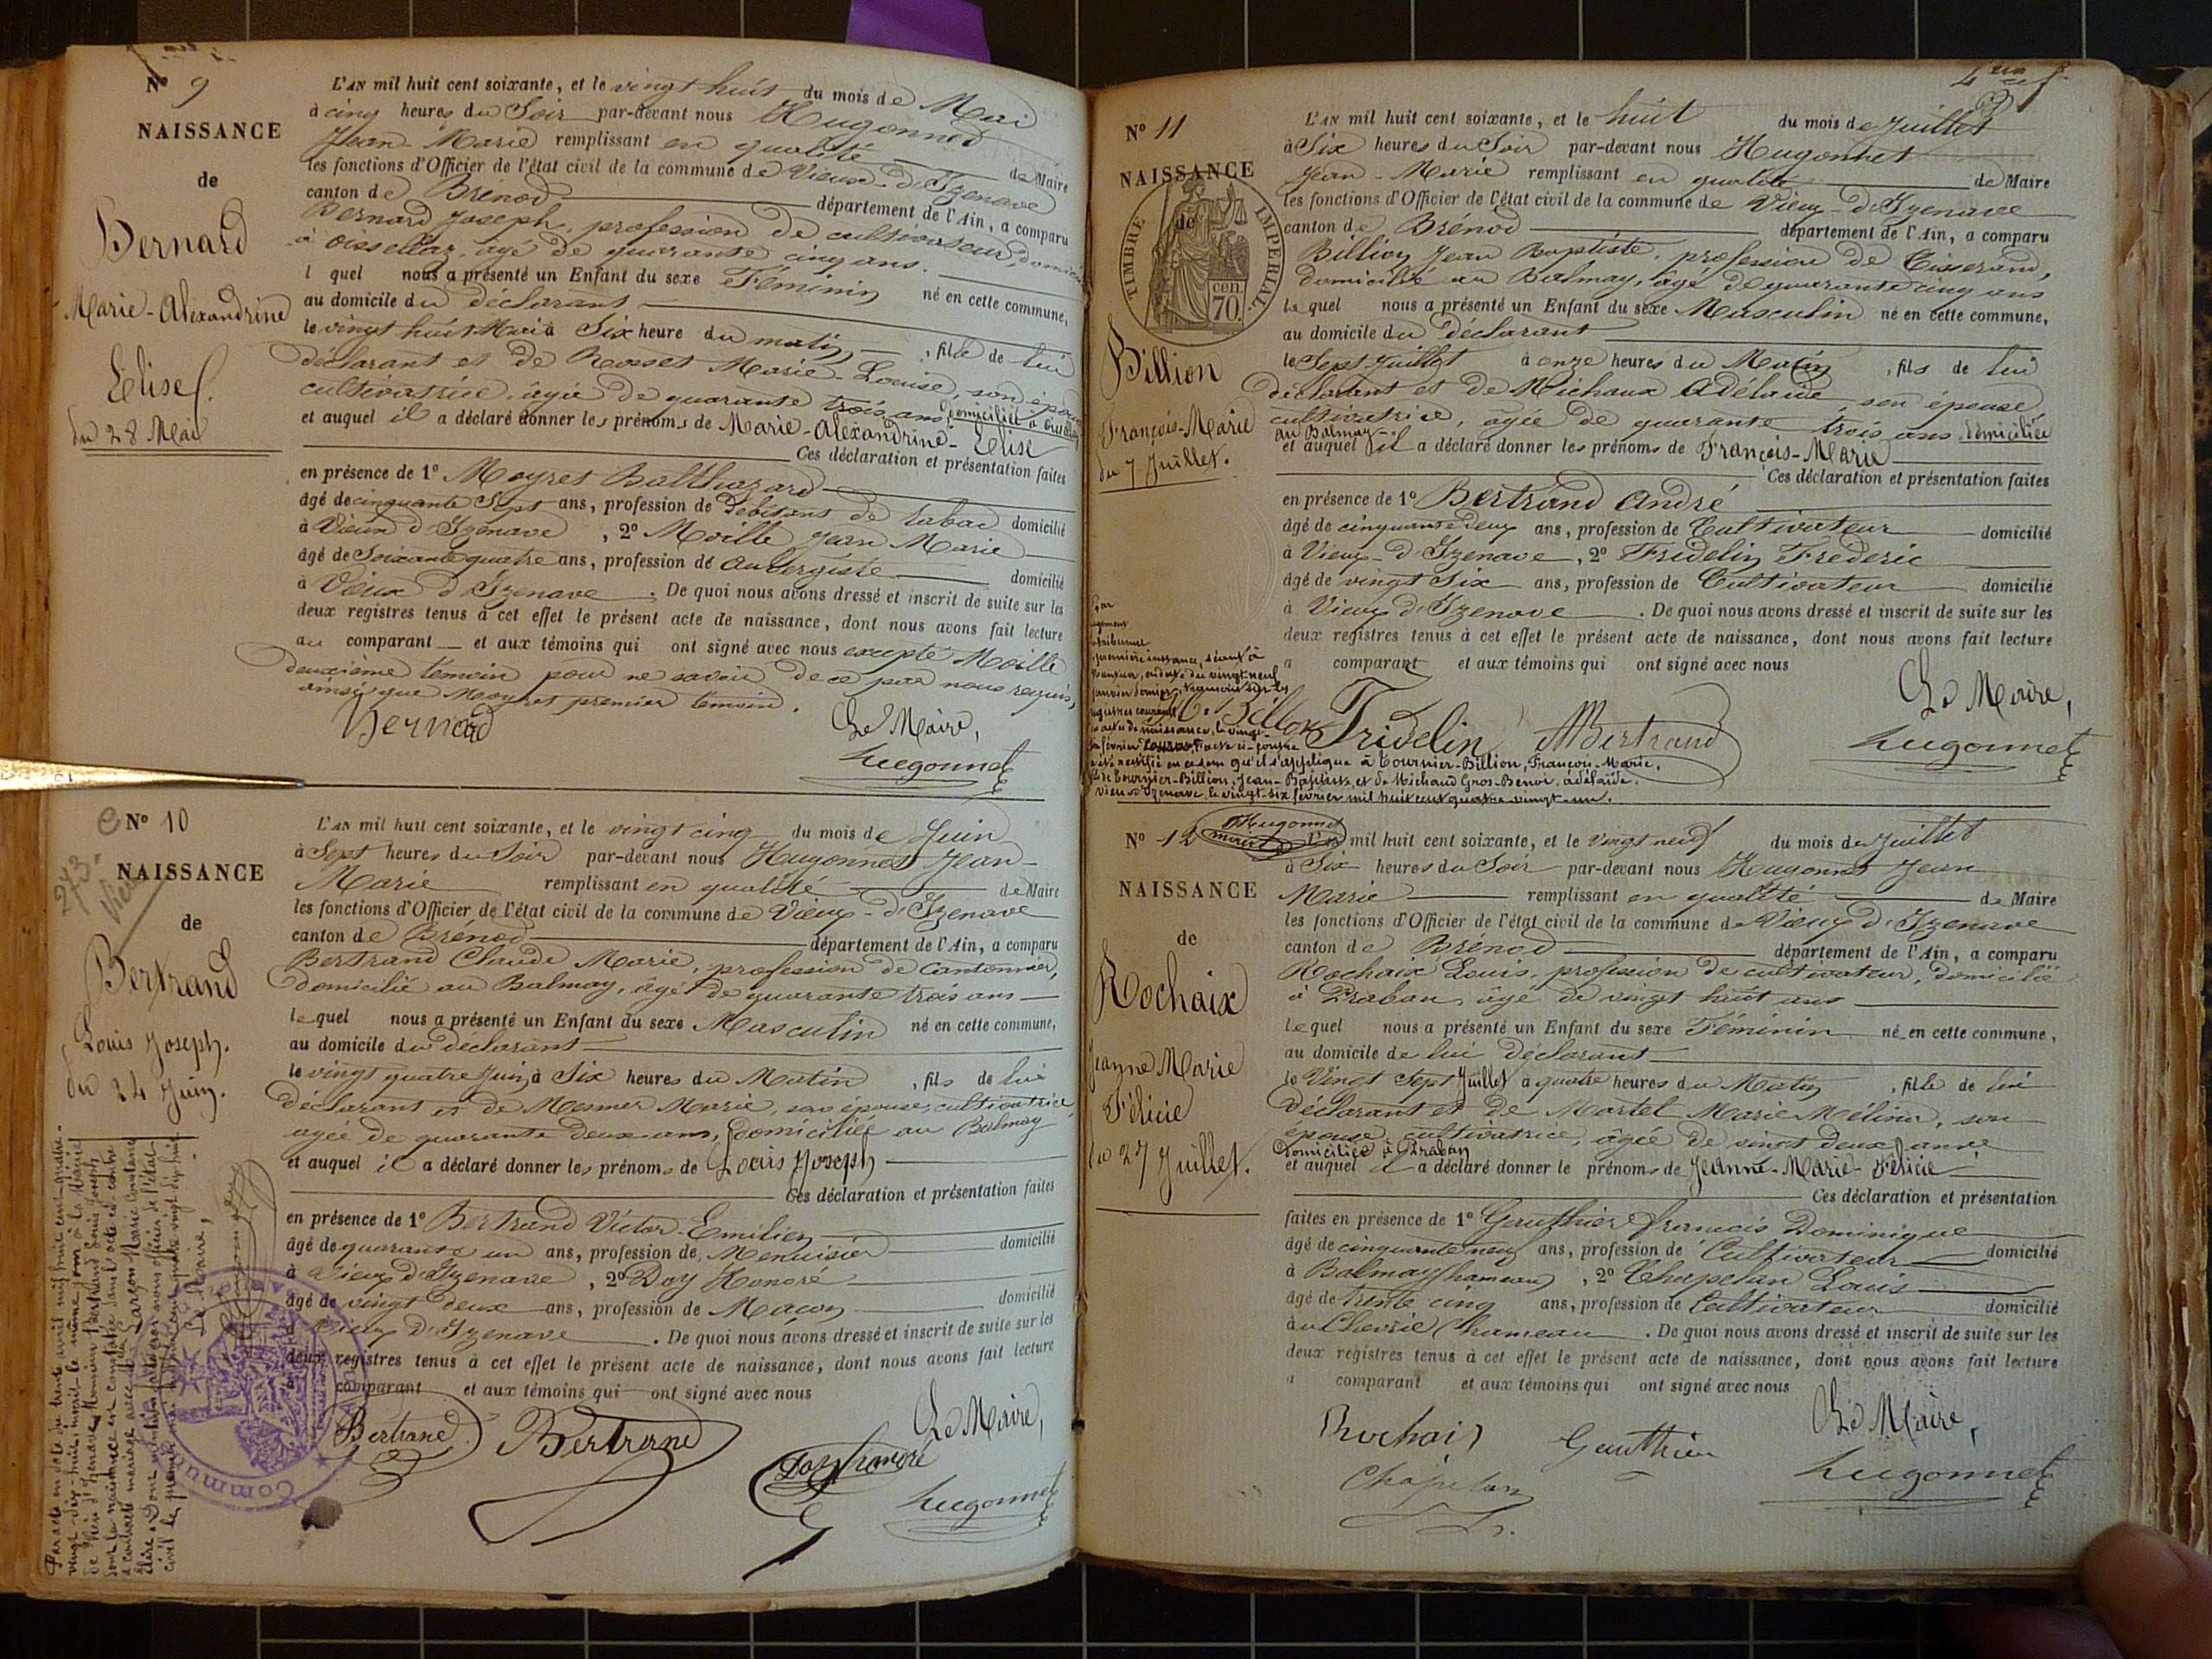 N° 9
NAISSANCE
de
Bernard
Marie-Alexandrine
Elise
du 28 Mai
L'AN mil huit cent soixante, et le vingt huit du mois de Mai
à cinq heures du Soir par-devant nous Hugonnet
Jean-Marie remplissant en qualité de Maire
les fonctions d'Officier de l'état civil de la commune de Vieux-d'Izenave
canton de Brenod département de l'Ain, a comparu
Bernard Joseph, profession de cultivateur, domicilié
à Oissellaz, âgé de quarante cinq ans.
l quel nous a présenté un Enfant du sexe Féminin né en cette commune,
au domicile du déclarant
le vingt huit Mai à Six heure du matin, fille de lui
déclarant et de Rosset Marie-Louise, son épouse
cultivatrice, âgée de quarante trois ans, domiciliée à
et auquel il a déclaré donner les prénoms de Marie-Alexandrine-Elise
Ces déclaration et présentation faites
en présence de 1° Moyret Balthazard
âgé de cinquante Sept ans, profession de Débitant de tabac domicilié
à Vieux d'Izenave, 2° Moille Jean Marie
âgé de Soixante quatre ans, profession de Aubergiste domicilié
à Vieux d'Izenave. De quoi nous avons dressé et inscrit de suite sur les
deux registres tenus à cet effet le présent acte de naissance, dont nous avons fait lecture
au comparant et aux témoins qui ont signé avec nous excepté Moille
deuxième témoin pour ne savoir de ce par nous requis,
ainsi que Moyret premier témoin.
Bernard
Le Maire,
Hugonnet
N° 10
NAISSANCE
de
Bertrand
Louis Joseph.
du 24 Juin.
L'AN mil huit cent soixante, et le vingt cinq du mois de Juin
à Sept heures du Soir par-devant nous Hugonnet Jean-
Marie remplissant en qualité de Maire
les fonctions d'Officier de l'état civil de la commune de Vieux-d'Izenave
canton de Brénod département de l'Ain, a comparu
Bertrand Claude Marie, profession de Cantonnier,
domicilié au Balmay, âgé de quarante trois ans
lequel nous a présenté un Enfant du sexe Masculin né en cette commune,
au domicile du déclarant
le vingt quatre Juin à Six heures du Matin, fils de lui
déclarant et de Mesmer Marie, son épouse, cultivatrice,
agée de quarante deux ans, domiciliée au Balmay
et auquel il a déclaré donner les prénoms de Louis Joseph
Ces déclaration et présentation faites
en présence de 1° Bertrand Victor-Emilien
âgé de quarante un ans, profession de Menuisier domicilié
à Vieux d'Izenave, 2° Doy Honoré
âgé de vingt deux ans, profession de Maçon domicilié
Vieux d'Izenave. De quoi nous avons dressé et inscrit de suite sur les
deux registres tenus à cet effet le présent acte de naissance, dont nous avons fait lecture
comparant et aux témoins qui ont signé avec nous
Bertrand
Bertrand
Doy honoré
Le Maire,
Hugonnet
Le Maire,
Commune
N° 11
NAISSANCE
de
TIMBRE IMPERIAL
70 cen
Billion
François-Marie
du 7 Juillet.
L'AN mil huit cent soixante, et le huit du mois de Juillet
à Six heures du Soir par-devant nous Hugonnet
Jean-Marie remplissant en qualité de Maire
les fonctions d'Officier de l'état civil de la commune de Vieux-d'Izenave
canton de Brénod département de l'Ain, a comparu
Billion Jean Baptiste, profession de Tisserand,
domicilié au Balmay, âgé de quarante cinq ans
le quel nous a présenté un Enfant du sexe Masculin né en cette commune,
au domicile du déclarant
le Sept Juillet à onze heures du Matin, fils de lui
déclarant et de Michaux Adélaïde, son épouse,
cultivatrice, âgée de quarante trois ans domiciliée
au Balmay
et auquel il a déclaré donner les prénoms de François-Marie
Ces déclaration et présentation faites
en présence de 1° Bertrand André
âgé de cinquante deux ans, profession de Cultivateur domicilié
à Vieux-d'Izenave, 2° Fridelin Frederic
âgé de vingt Six ans, profession de Cultivateur domicilié
à Vieux d'Izenave. De quoi nous avons dressé et inscrit de suite sur les
deux registres tenus à cet effet le présent acte de naissance, dont nous avons fait lecture
a comparant et aux témoins qui ont signé avec nous
Le Maire,
Billion Fridelin Bertrand Hugonnet
Par
jugement
première instance, séant à
Nantua, en date du vingt-neuf
janvier dernier, transcrit sur les
registres courants
actes de naissance, le vingt-
rectifié en ce sens qu'il s'applique à Tournier-Billion, François-Marie,
fils de Tournier-Billion, Jean-Baptiste, et de Michaud Gros-Benoit, adélaïde.
Vieux d'Izenave, le vingt-six février mil huit cent quatre-vingt-un.
Hugonnet
N° 12
NAISSANCE
de
Rochaix
Jeanne Marie
Félicie
du 27 Juillet.
L'AN mil huit cent soixante, et le vingt neuf du mois de Juillet
à Six heures du Soir par-devant nous Hugonnet Jean
Marie remplissant en qualité de Maire
les fonctions d'Officier de l'état civil de la commune de Vieux d'Izenave
canton de Brénod département de l'Ain, a comparu
Rochaix Louis, profession de cultivateur, domicilié
à Praban, âgé de vingt huit ans
lequel nous a présenté un Enfant du sexe Féminin né en cette commune,
au domicile de lui déclarant
le Vingt Sept Juillet à quatre heures du Matin, fille de lui
déclarant et de Martel Marie Mélina, son
épouse, cultivatrice, âgée de vingt deux ans
domiciliée à Praban
et auquel il a déclaré donner le prénoms de Jeanne-Marie-Félicie
Ces déclaration et présentation
faites en présence de 1° Gauthier francois Dominique
âgé de cinquante neuf ans, profession de Cultivateur domicilié
à Balmay (hameau), 2° Chapelan Louis
âgé de trente cinq ans, profession de Cultivateur domicilié
à hameau. De quoi nous avons dressé et inscrit de suite sur les
deux registres tenus à cet effet le présent acte de naissance, dont nous avons fait lecture
a comparant et aux témoins qui ont signé avec nous
Rochaix Gauthier
Chapelan
Le Maire,
Hugonnet